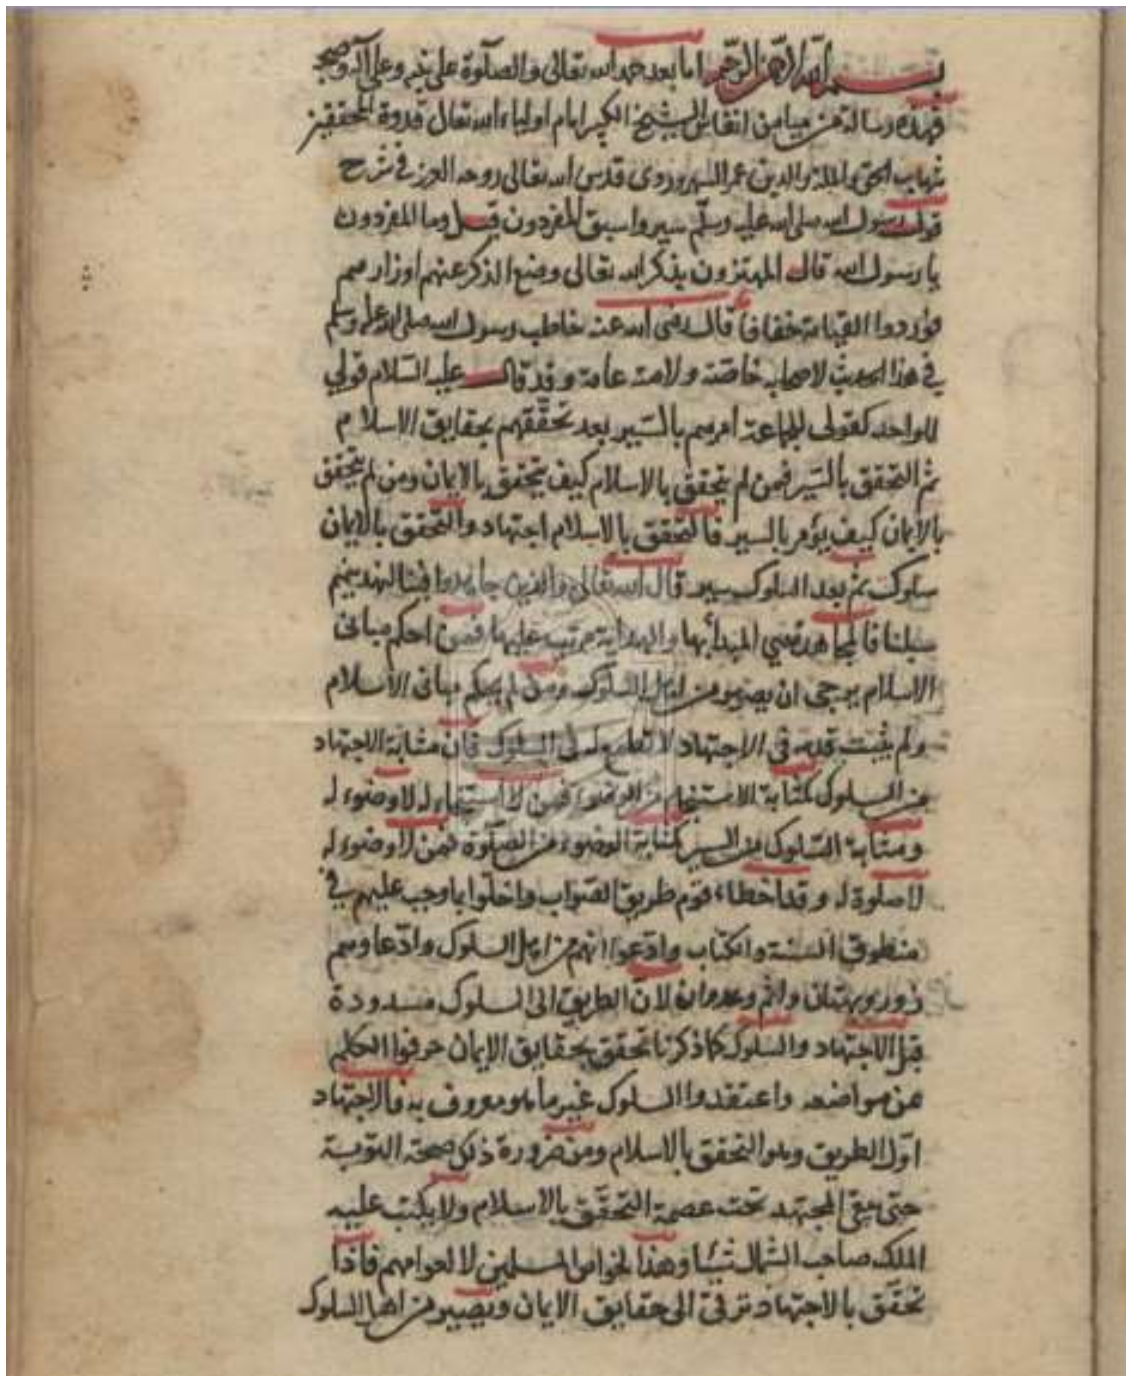 بسم الله الرحمن الرحيم اما بعد حمد الله تعالى والصلوة على نبيه وعلى آله وصحبه
فهذه رسالة من ميامن انفاس الشيخ الكبير امام اولياء الله تعالى قدوة المحققين
شهاب الحق والملة والدين عمر السهروردى قدس الله تعالى روحه العزيز فى شرح
قول رسول الله صلى الله عليه وسلم سيروا سبق المفردون قيل وما المفردون
يا رسول الله قال المهتزون بذكر الله تعالى وضع الذكر عنهم اوزارهم
فوردوا القيامة خفافا قال رضى الله عنه خاطب رسول الله صلى الله عليه وسلم
في هذا الحديث لاصحابه خاصة ولامته عامة وقد قال عليه السلام قولي
للواحد كقولى للجماعة امرهم بالسير بعد تحققهم بحقايق الاسلام
ثم التحقق بالسير فمن لم يتحقق بالاسلام كيف يتحقق بالايمان ومن لم يتحقق
بالايمان كيف يؤمر بالسير فالتحقق بالاسلام اجتهاد والتحقق بالايمان
سلوك ثم بعد السلوك سير قال الله تعالى والذين جاهدوا فينا لنهدينهم
سبلنا فالمجاهدة هي المبدأ بها والهداية مرتب عليها فمن احكم مبانى
الاسلام يرجى ان يصير من اهل السلوك ومن لم يحكم مبانى الاسلام
ولم يثبت قدمه فى الاجتهاد لا تطمع له فى السلوك فان مثابة الاجتهاد
من السلوك كمثابة الاستنجاء من الوضوء فمن لا استنجاء له لا وضوء له
ومثابة السلوك من السير كمثابة الوضوء من الصلوة فمن لا وضوء له
لا صلوة له وقد اخطاء قوم طريق الصواب واخلوا بما وجب عليهم في
منطوق السنة والكتاب وادعوا انهم من اهل السلوك وادعاوهم
زور وبهتان واثم وعدوان لان الطريق الى السلوك مسدودة
قبل الاجتهاد والسلوك كما ذكرنا تحقق بحقايق الايمان حرفوا الكلم
عن مواضعه واعتقدوا السلوك غير ما هو معروف به فالاجتهاد
اول الطريق وهو التحقق بالاسلام ومن ضرورة ذلك صحة التوبة
حتى يبقى المجتهد تحت عصمة التحقق بالاسلام ولا يكتب عليه
الملك صاحب الشمال شيئا وهذا لخواص المسلمين لا لعوامهم فاذا
تحقق بالاجتهاد ترقى الى حقايق الايمان ويصير من اهل السلوك